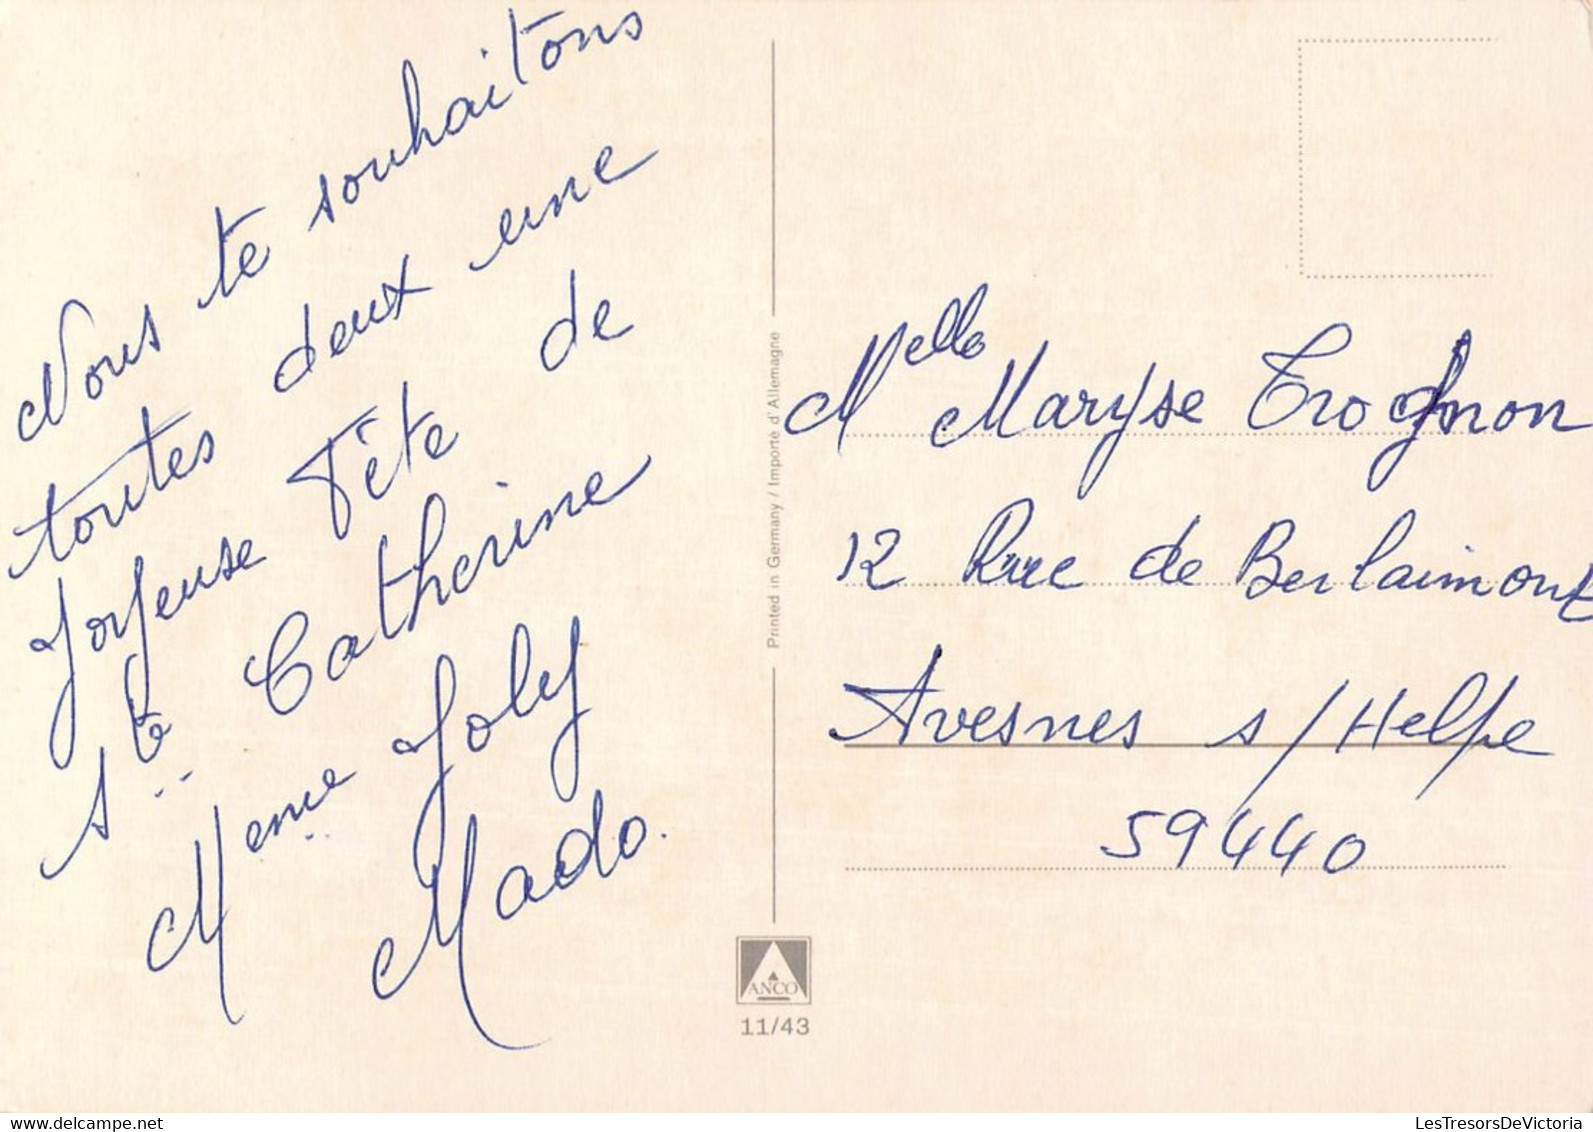 Nous te souhaitons
toutes deux une
Joyeuse Fête de
Ste Catherine
Meme Joly
Mado.
Printed in Germany / Importé d'Allemagne
ANCO
11/43
Melle Maryse Trognon
12 Rue de Berlaimont
Avesnes s/Helpe
59440
LesTresorsDeVictoria